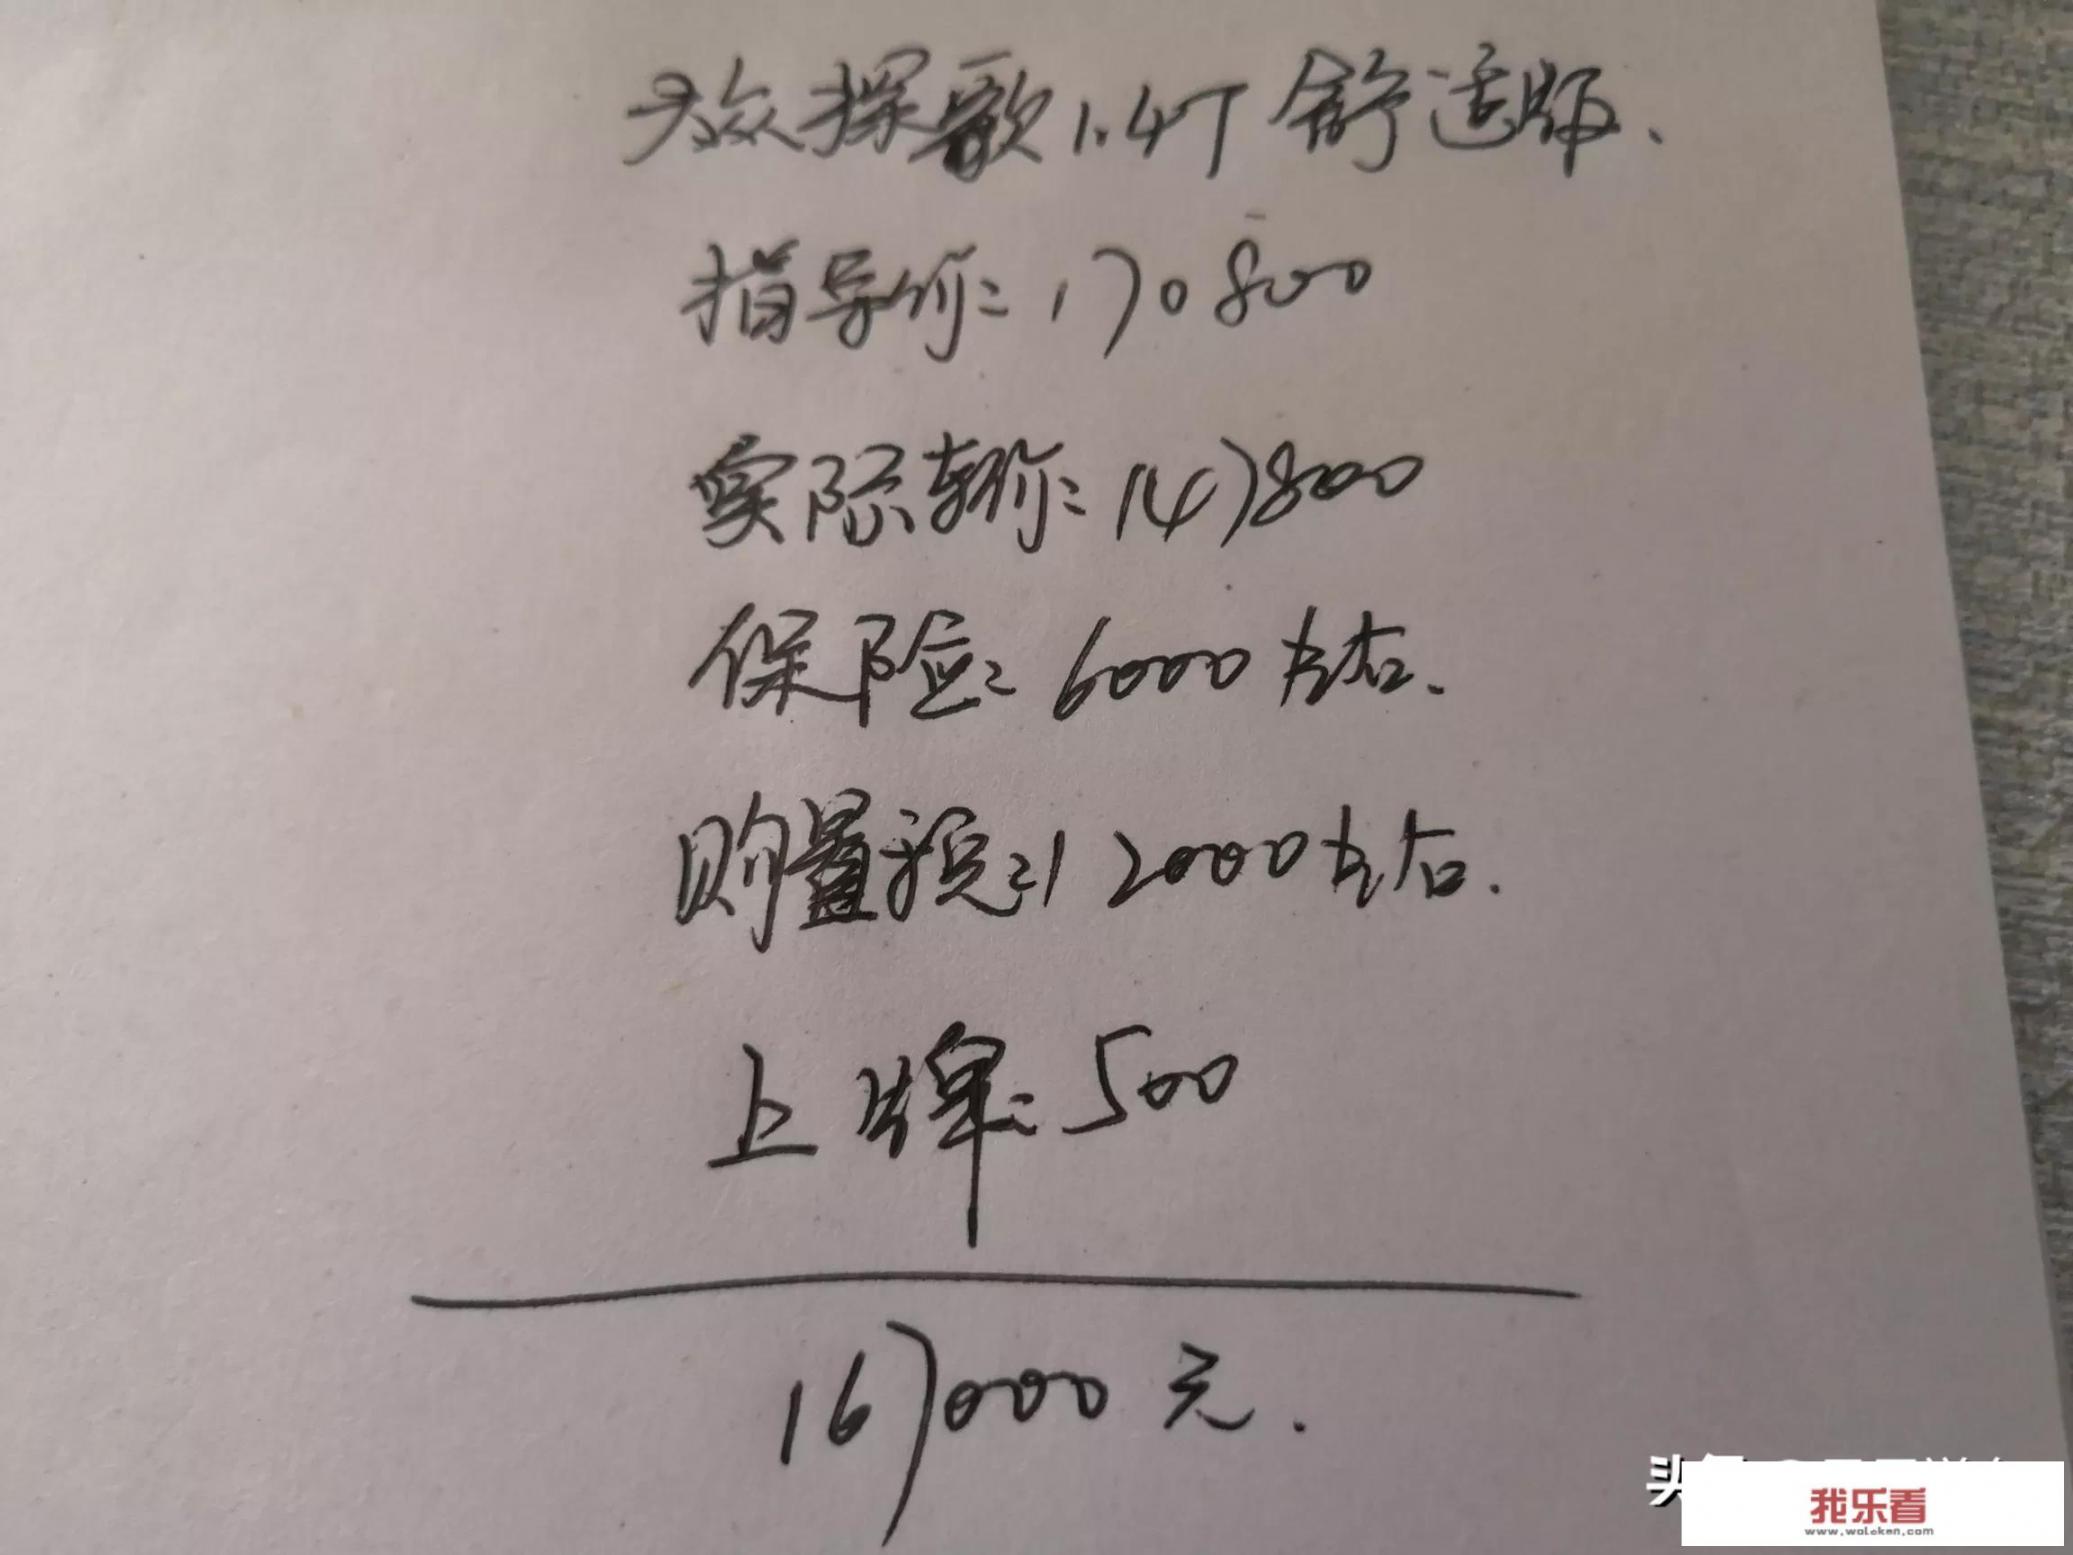 大众探歌1.4T 舒适版.
指导价:170800
实际车价:147800
保险:6000左右.
购置税:12000左右.
上牌:500
167000元.
我乐看
www.woleken.com